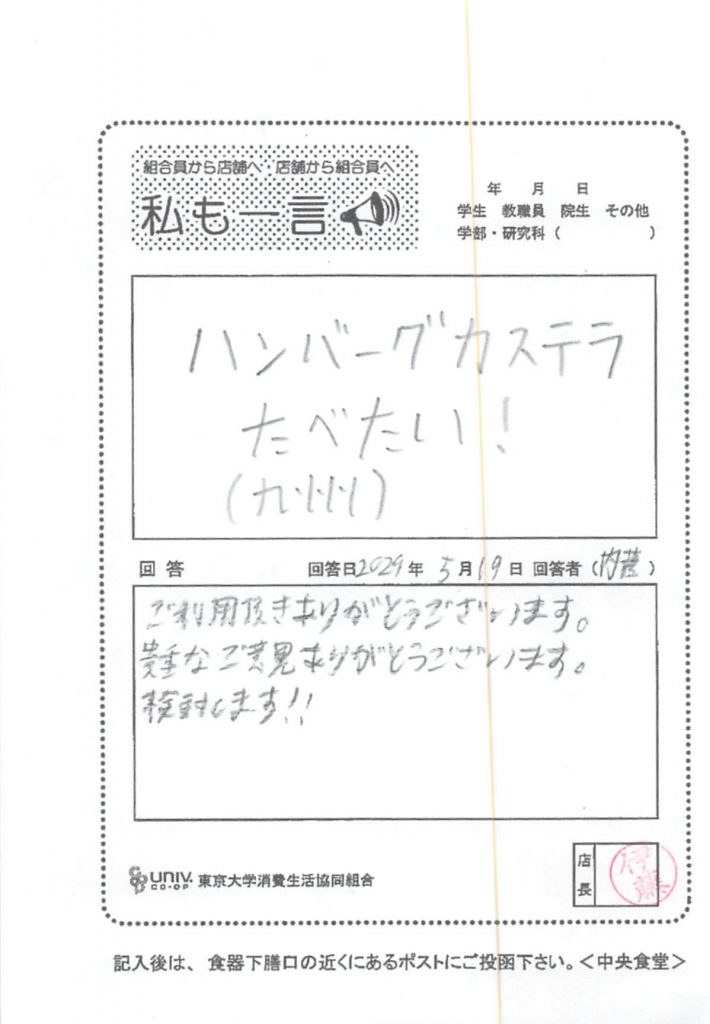 組合員から店舗へ・店舗から組合員へ
私も一言
年 月 日
学生 教職員 院生 その他
学部・研究科（ ）
ハンバーグカステラ
たべたい！
（九州）
回答 回答日2029年 5月19日 回答者（内藤）
ご利用頂きありがとうございます。
貴重なご意見ありがとうございます。
検討します!!
店長
伊藤
CO OP UNIV. CO-OP 東京大学消費生活協同組合
記入後は、食器下膳口の近くにあるポストにご投函下さい。＜中央食堂＞